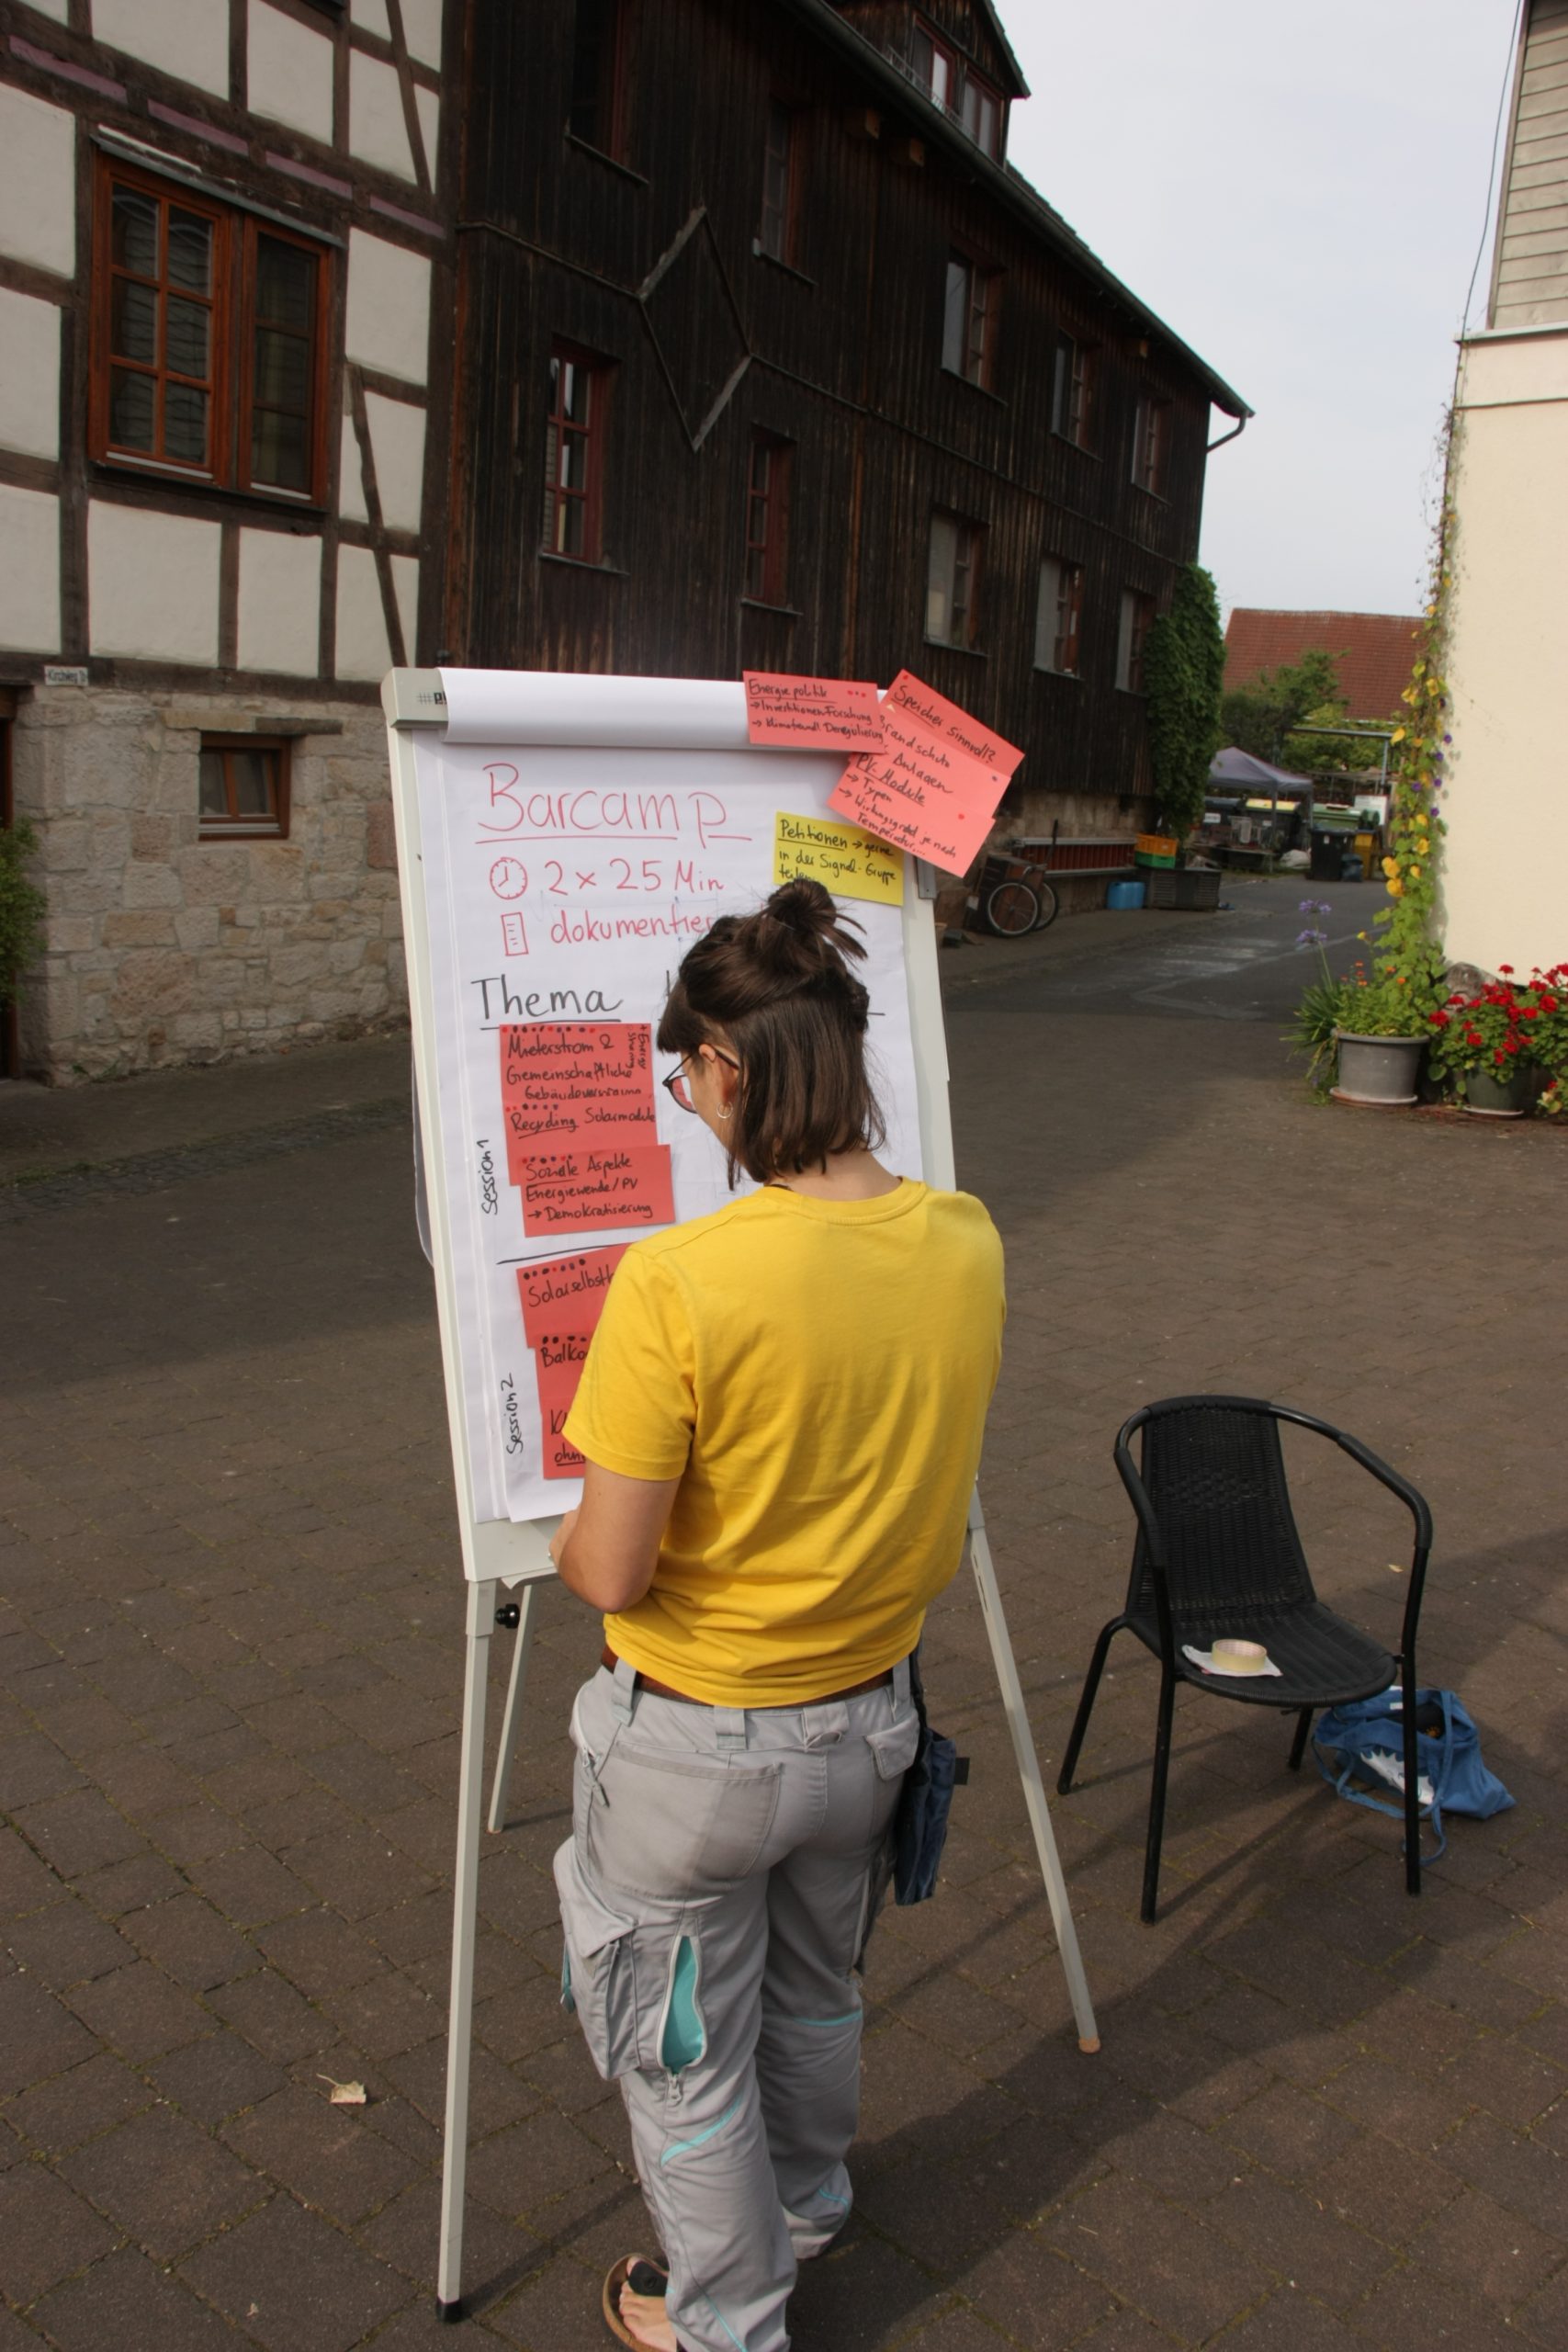 Kirchweg
Energiepolitik
→ Investitionen Forschung
Deregulierung
Speicher sinnvoll?
Brandschutz
Anlagen
PV-Module
→ Typen
→ Wirkungsgrad je nach
Temperatur...
Petitionen → gerne
in der Signal-Gruppe
teilen
Barcamp
2 x 25 Min
dokumentier
Thema
Session 1
Mieterstrom &
Gemeinschaftliche
+ Energy
Sharing
Recycling Solarmodule
Soziale Aspekte
Energiewende/PV
→ Demokratisierung
Session 2
Solarselbst
Balko